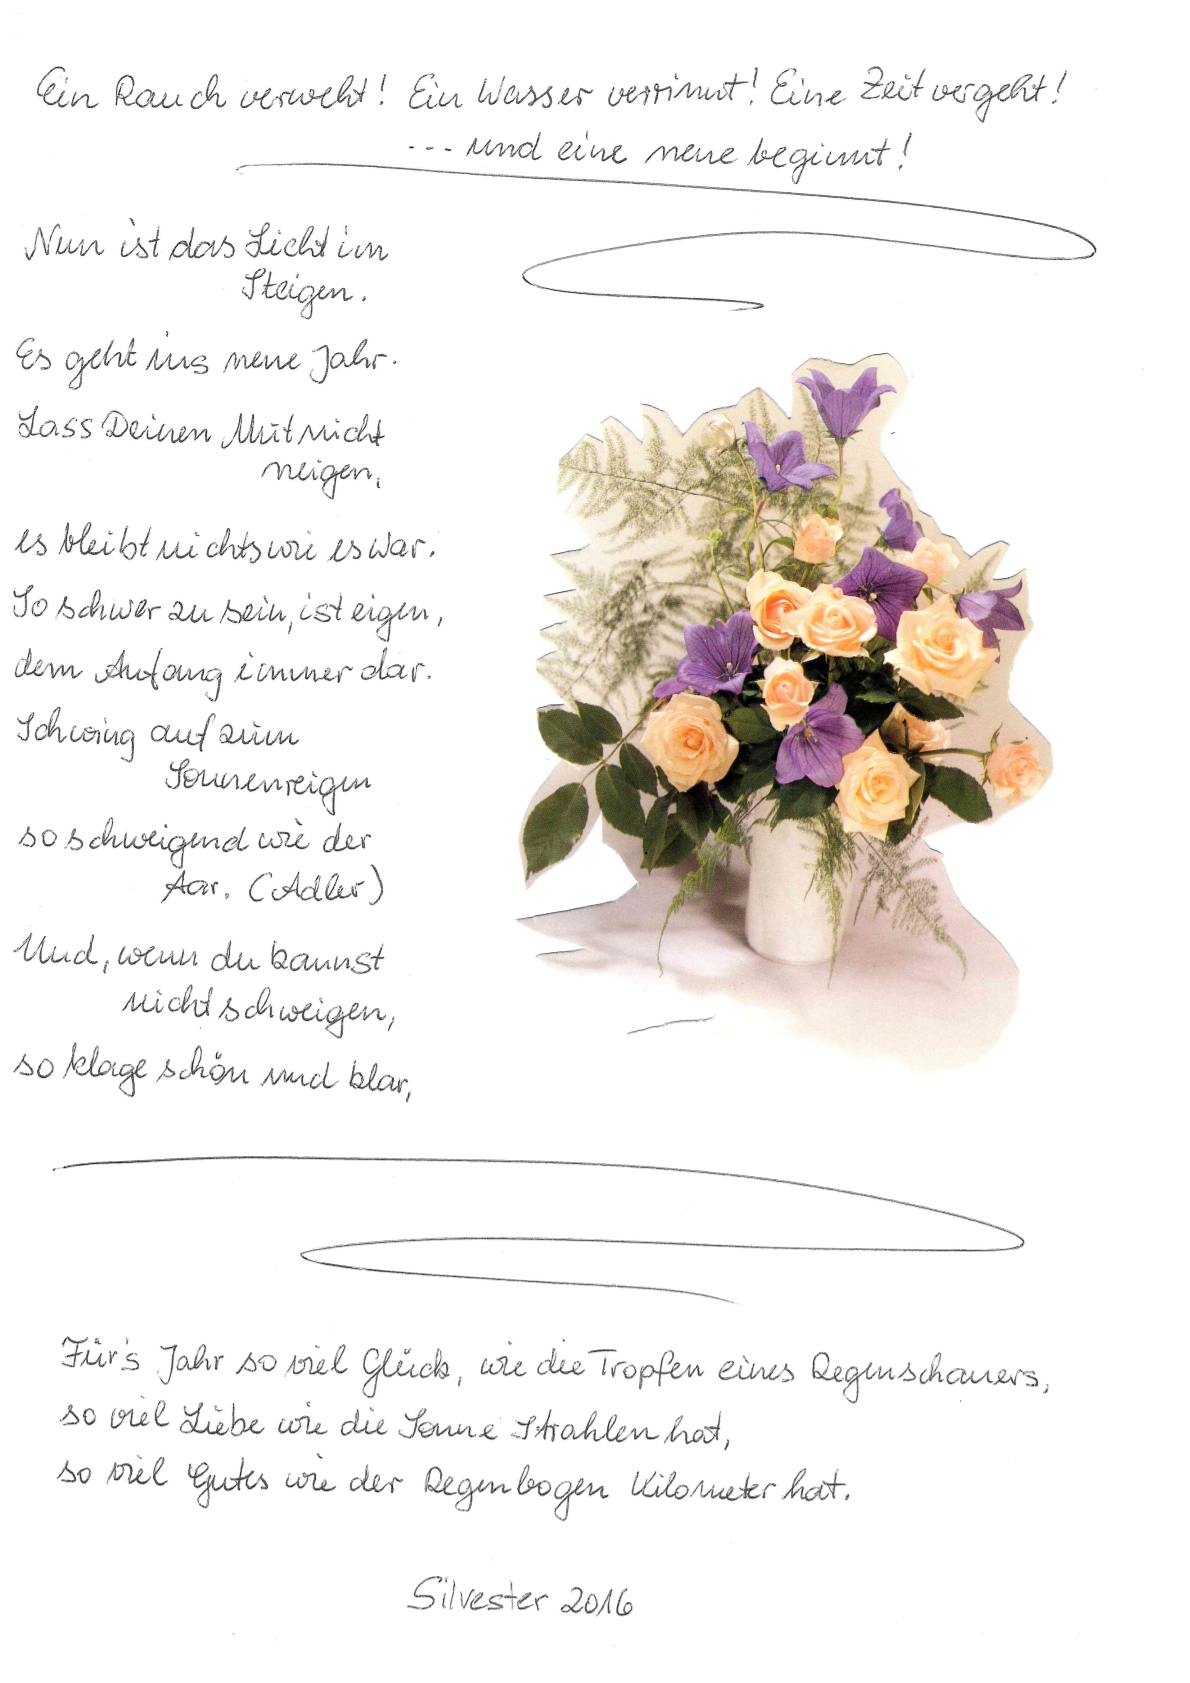 Ein Rauch verweht! Ein Wasser verrinnt! Eine Zeit vergeht!
--- und eine neue beginnt!
Nun ist das Licht im
Steigen.
Es geht ins neue Jahr.
Lass Deinen Mut nicht
neigen,
es bleibt nichts wie es war.
So schwer zu sein, ist eigen,
dem Anfang immer dar.
Schwing auf zum
Sonnenreigen
so schweigend wie der
Aar. (Adler)
Und, wenn du kannst
nicht schweigen,
so klage schön und klar,
Für's Jahr so viel Glück, wie die Tropfen eines Regenschauers,
so viel Liebe wie die Sonne Strahlen hat,
so viel Gutes wie der Regenbogen Kilometer hat.
Silvester 2016